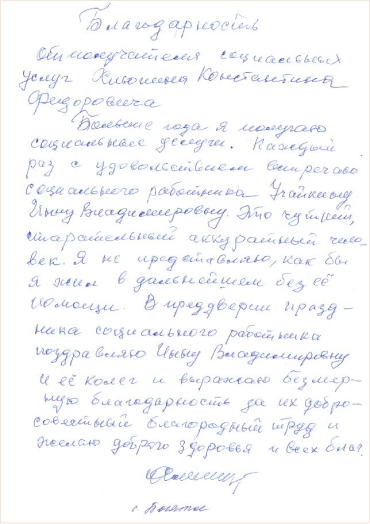 Благодарность
от получателя социальных
услуг Константина
Федоровича
Больше года я получаю
социальные услуги. Каждый
раз с удовольствием встречаю
социального работника
Инну Владимировну. Это чуткий,
старательный аккуратный чело-
век. Я не представляю, как бы
я жил в дальнейшем без её
помощи. В преддверии празд-
ника социального работника
поздравляю Инну Владимировну
и её колег и выражаю безмер-
ную благодарность за их добро-
совестный благородный труд и
желаю доброго здоровья и всех благ.
с.